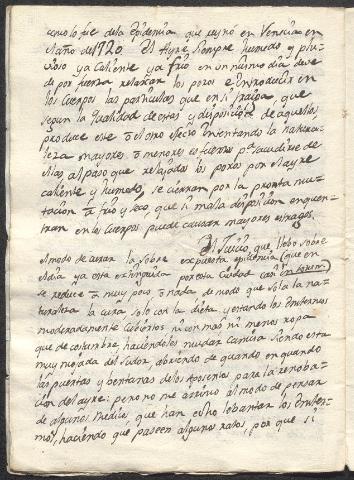 como lo fue de la Epidemia que reynò en Venecia en
el año de 1720. El Ayre siempre humedo y plu-
vioso ya caliente ya frio en un mismo dia deve
de por fuerza relaxar los poros e introducir en
los Cuerpos las particulas que en sí traiga, que
segun la qualidad de estas y disposicion de aquellos,
produce este ò el otro efecto intentando la natura-
leza mayores ò menores esfuerzos pª sacudirse de
ellas, al paso que relaxados los poros por el ayre
caliente y humedo, se cierran por la pronta mu-
tacion à frio y seco, que si mala disposicion encuen-
tran en los Cuerpos puede causar mayores estragos.
El Juicio que llebo sobre
el modo de curar la sobre expuesta epidemia (que en
el dia ya esta extinguida por esta Ciudad casi in totum)
se reduce à muy poco ò nada de modo que sola la na-
turaleza la cura, solo con la dieta, y estando los Enfermos
moderadamente cubiertos ni con mas ni menos ropa
que de costumbre, haciendoles mudar Camisa siendo esta
muy mojada del sudor, abriendo de quando en quando
las puertas y ventanas de los Aposentos para la renoba-
cion del ayre: pero no me arrimo al modo de pensar
de algunos Medicos, que han echo lebantar los Enfer-
mos, haciendo que paseen algunos ratos, por que si